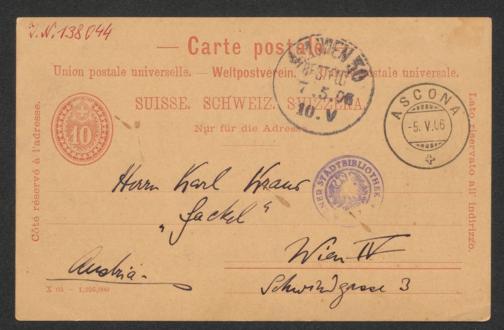 J.N. 138044
Carte postale.
Union postale universelle. — Weltpostverein. — Unione postale universale.
SUISSE. SCHWEIZ. SVIZZERA.
Nur für die Adresse
Côté réservé à l'adresse.
10
Lato riservato all' indirizzo.
WIEN 50
7.5.06
10.V
ASCONA
-5.V.06
STADTBIBLIOTHEK
Herrn Karl Kraus
"Fackel"
Wien IV
Schwindgasse 3
Austria